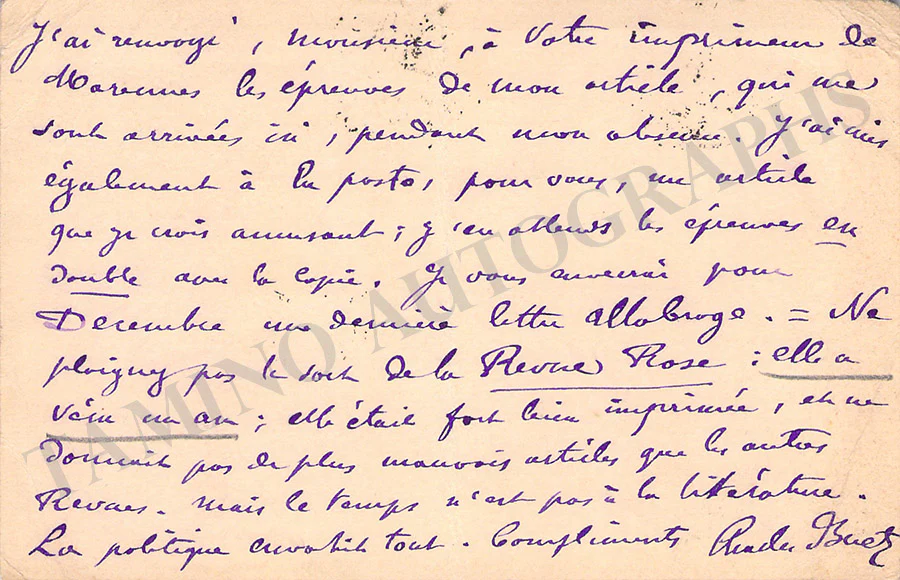 J'ai renvoyé, monsieur, à votre imprimeur de
Marennes les épreuves de mon article, qui me
sont arrivées ici, pendant mon absence. J'ai mis
également à la poste, pour vous, un article
que je crois amusant; j'en attends les épreuves en
double avec la copie. Je vous enverrai pour
Décembre ma dernière lettre allobroge. = Ne
plaignez pas le sort de la Revue Rose : elle a
vécu un an ; elle était fort bien imprimée, et ne
donnait pas de plus mauvais articles que les autres
Revues. Mais le temps n'est pas à la littérature.
La politique envahit tout. Compliments Charles Buet
TAMINO AUTOGRAPHS